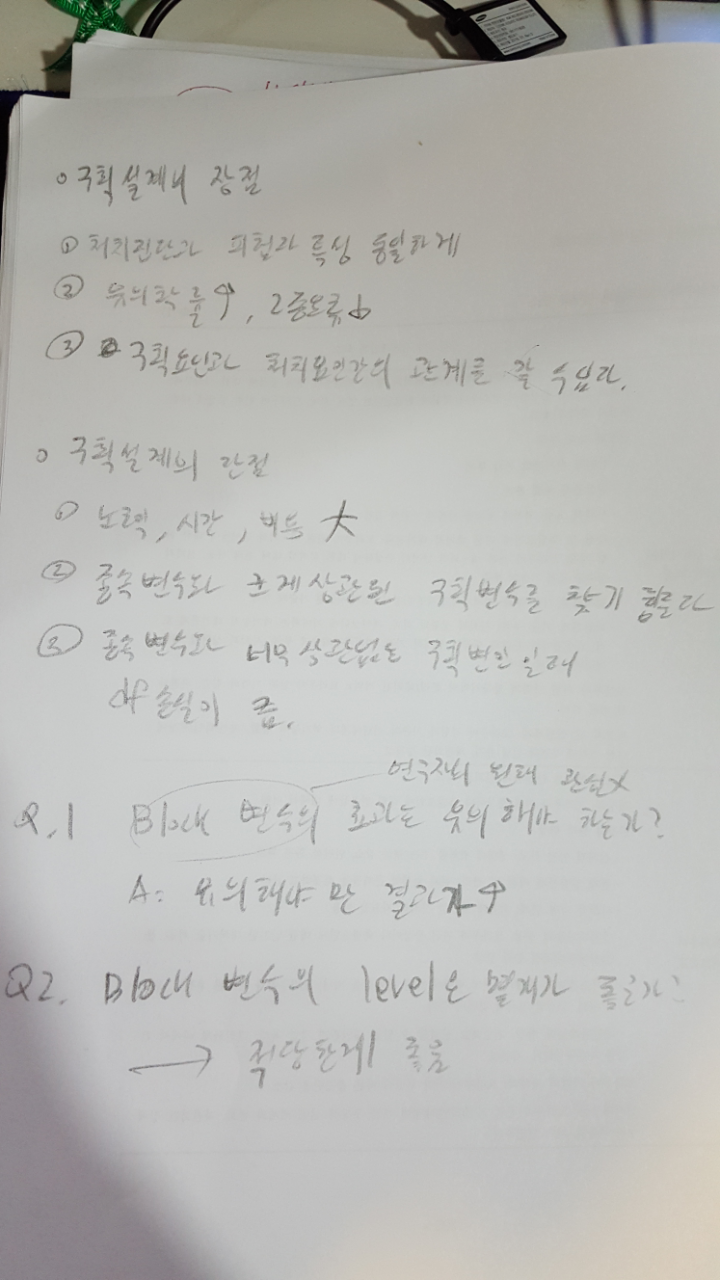 ○ 구획설계의 장점
① 처치집단과 피험자 특성 동일하게
② 유의확률↑, 2종오류↓
③ 구획요인과 처치요인간의 관계를 알 수 있다.
○ 구획설계의 단점
① 노력, 시간, 비용 大
② 종속변수와 상관된 구획변수를 찾기 힘들다
③ 종속변수와 너무 상관없는 구획변인 일 때
df 손실이 큼.
연구자의 원래 관심X
Q.1 Block 변수의 효과는 유의 해야 하는가?
A: 유의해야 만 결과가↑
Q2. Block 변수의 level은 몇개가 좋은가?
→ 적당한게 좋음